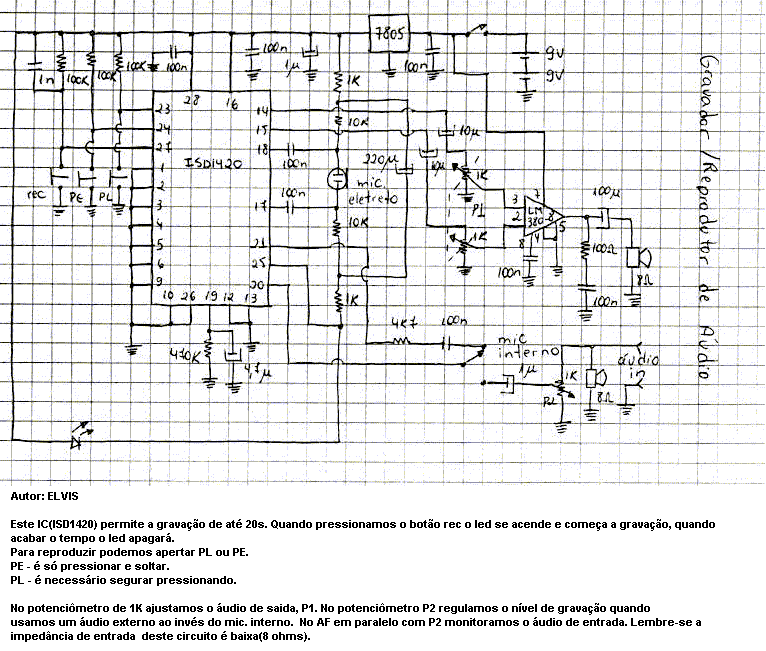 7805
100n
1μ
100n
9V
9V
1n
100K
100K
100K
100n
28
16
1K
10K
23
24
27
1
2
3
4
5
6
9
ISD1420
14
15
18
17
21
25
20
10 26 19 12 13
100n
100n
mic.
eletreto
220μ
10μ
10μ
1K
P1
1K
10K
1K
3
2
7
LM
380-8
5
8
4
100n
100μ
100Ω
100n
8Ω
rec
PE
PL
470K
4,7μ
4K7
100n
mic
interno
1μ
1K
P2
8Ω
áudio
in
Gravador/Reprodutor de Áudio
Autor: ELVIS
Este IC(ISD1420) permite a gravação de até 20s. Quando pressionamos o botão rec o led se acende e começa a gravação, quando
acabar o tempo o led apagará.
Para reproduzir podemos apertar PL ou PE.
PE - é só pressionar e soltar.
PL - é necessário segurar pressionando.
No potenciômetro de 1K ajustamos o áudio de saida, P1. No potenciômetro P2 regulamos o nível de gravação quando
usamos um áudio externo ao invés do mic. interno.  No AF em paralelo com P2 monitoramos o áudio de entrada. Lembre-se a
impedância de entrada  deste circuito é baixa(8 ohms).